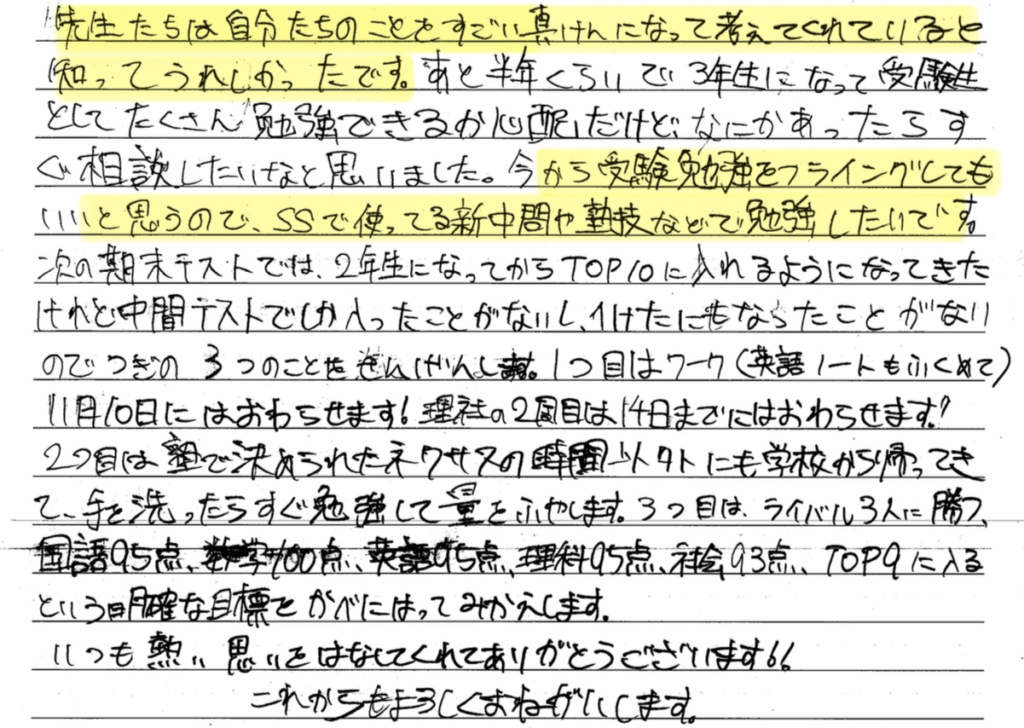 先生たちは自分たちのことをすごい真けんになって考えてくれていると
知ってうれしかったです。あと半年くらいで3年生になって受験生
としてたくさん勉強できるか心配だけど、なにかあったらす
ぐ相談したいなと思いました。今から受験勉強をフライングしても
いいと思うので、SSで使ってる新中問や塾技などで勉強したいです。
次の期末テストでは、2年生になってからTOP10に入れるようになってきた
けれど中間テストでしか入ったことがないし、1けたにもなったことがない
のでつぎの3つのことをせんげんします。1つ目はワーク(英語ノートもふくめて)
11月10日にはおわらせます!理社の2周目は14日までにはおわらせます!
2つ目は塾で決められたネクサスの時間以外にも学校から帰ってき
て、手を洗ったらすぐ勉強して量をふやします。3つ目は、ライバル3人に勝つ、
国語95点、数学100点、英語95点、理科95点、社会93点、TOP9に入る
という明確な目標をかべにはってみかえします。
いつも熱い思いをはなしてくれてありがとうございます!!
これからもよろしくおねがいします。